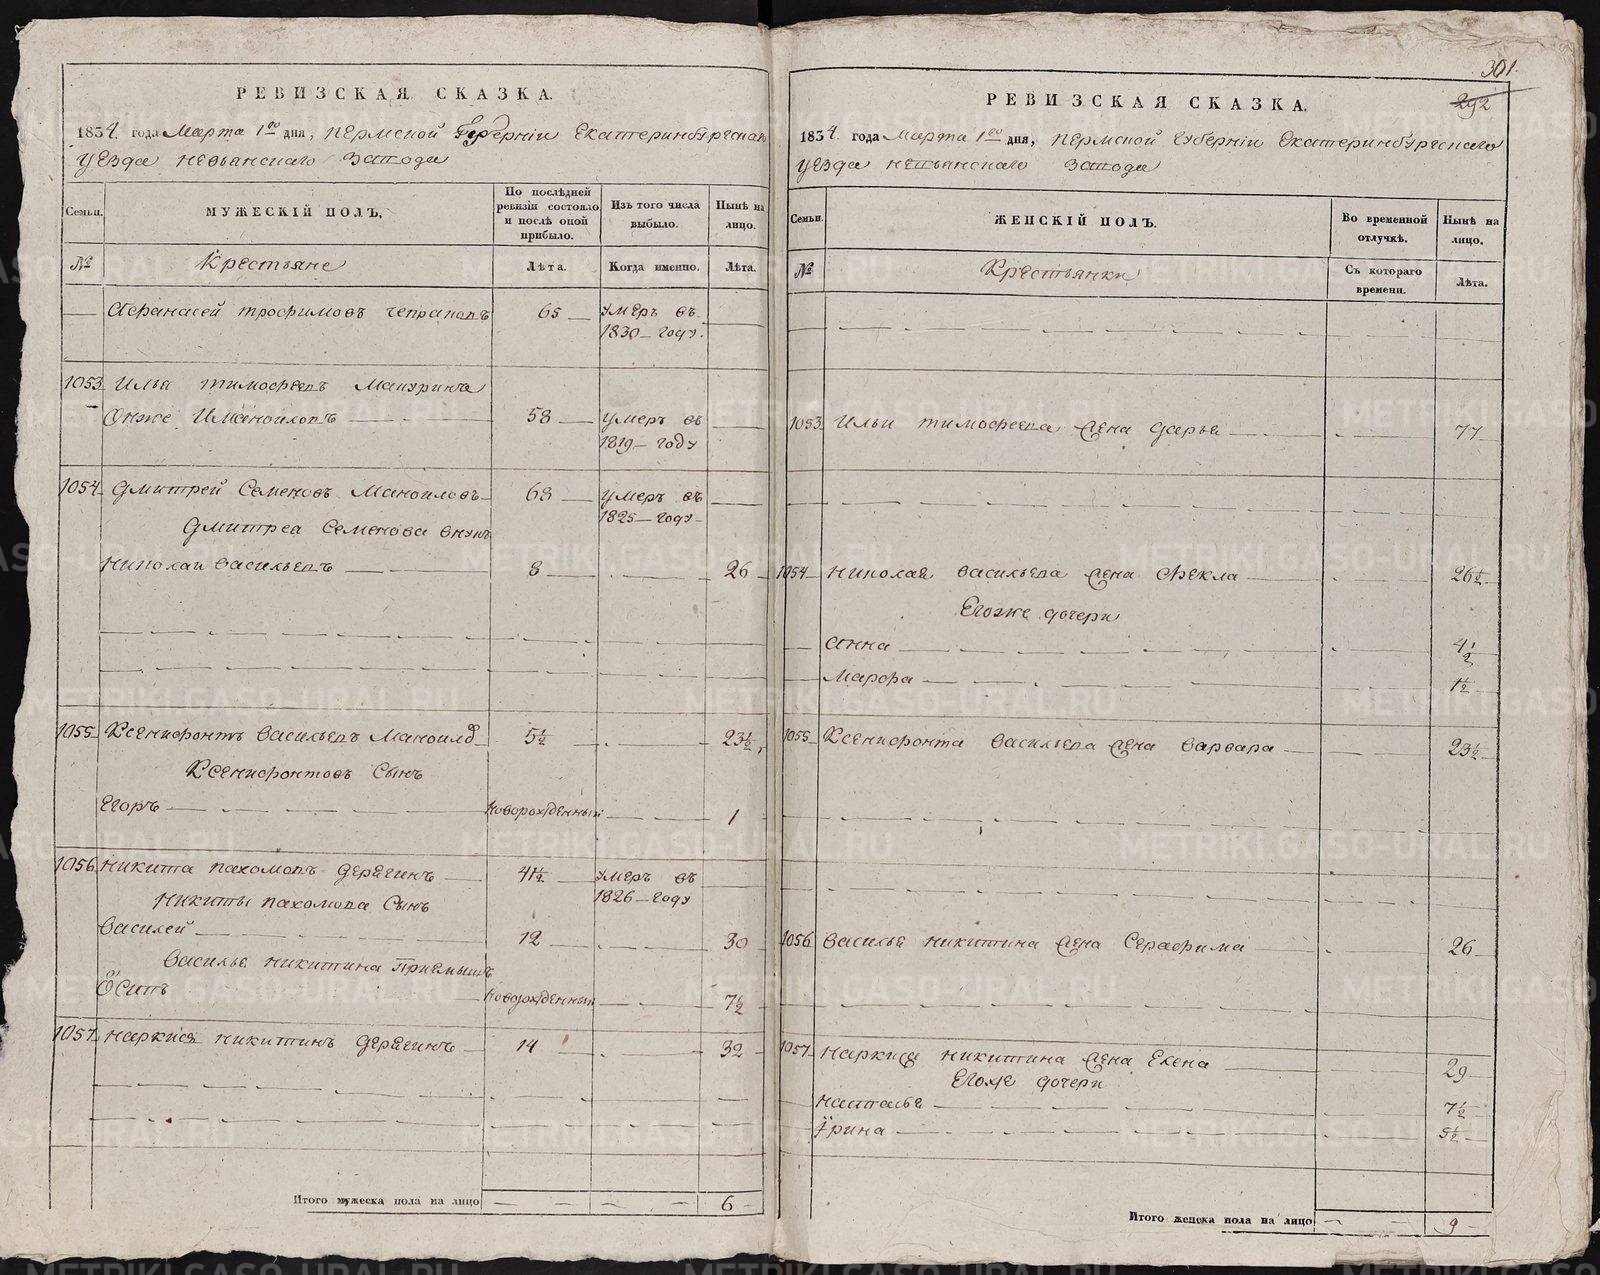 РЕВИЗСКАЯ СКАЗКА.
1834. года Марта 1го дня, Пермской Губерніи Екатеринбургскаго
уезда невьянскаго Завода
Семьи.
МУЖЕСКІЙ ПОЛЪ.
По послѣдней ревизіи состояло и послѣ оной прибыло.
Изъ того числа выбыло.
Нынѣ на лицо.
№
Крестьяне
Лѣта.
Когда именно.
Лѣта.
Афанасей трофимовъ 65 умеръ въ
1830 году.
1053 Илья тимофеевъ
Онже 58 умеръ въ
1819 году
1054 Дмитрей Семеновъ Маноиловъ 68 умеръ въ
1825 году
Дмитрея Семенова внукъ
николай васильевъ 8 26
1055 Ксенифонтъ васильевъ Маноиловъ 5½ 23½
Ксенифонтовъ сынъ
Егоръ новорожденный 1
1056 никита пахомовъ дерягинъ 41½ умеръ въ
1826 году
никиты пахомова сынъ
василей 12 30
василья никитина приемышъ
Осипъ новорожденный 7½
1057 наркисъ никитинъ дерягинъ 14 32
Итого мужеска пола на лицо 6
301.
292
РЕВИЗСКАЯ СКАЗКА.
1834. года Марта 1го дня, Пермской губерніи Екатеринбургскаго
уезда невьянскаго Завода
Семьи.
ЖЕНСКІЙ ПОЛЪ.
Во временной отлучкѣ.
Нынѣ на лицо.
№
Крестьянки
Съ котораго времени.
Лѣта.
1053 Ильи тимофеева жена дарья 77
1054 николая васильева жена фекла 26½
Егоже дочери
анна 4½
марфа 1½
1055 Ксенифонта васильева жена варвара 23½
1056 василья никитина жена серафима 26
1057 наркиса никитина жена Елена 29
Егоже дочери
наталья 7½
Ирина 5½
Итого женска пола на лицо 9
METRIKI.GASO-URAL.RU